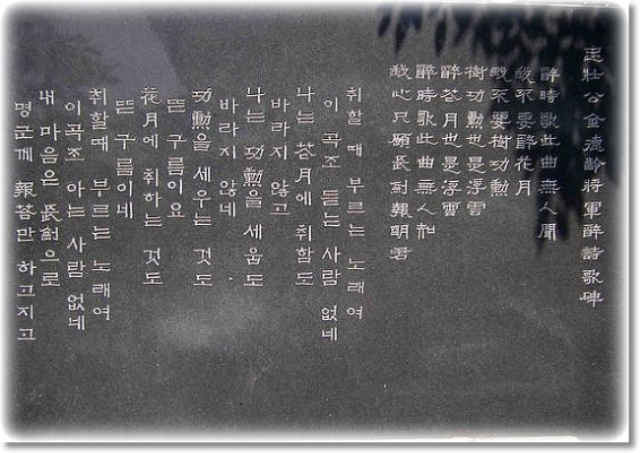 忠壯公金德齡將軍醉詩歌碑
醉時歌此曲無人聞
我不要醉花月
我不要樹功勲
樹功勲也是浮雲
醉花月也是浮雲
醉時歌此曲無人知
我心只願長劍報明君
취할 때 부르는 노래여
이 곡조 듣는 사람 없네
나는 花月에 취함도
바라지 않고
나는 功勲을 세움도
바라지 않네
功勲을 세우는 것도
뜬 구름이요
花月에 취하는 것도
뜬 구름이네
취할때 부르는 노래여
이곡조 아는 사람 없네
내 마음은 長劍으로
명군께 報答만 하고지고